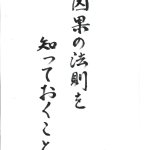 因果の法則を
知っておくこと